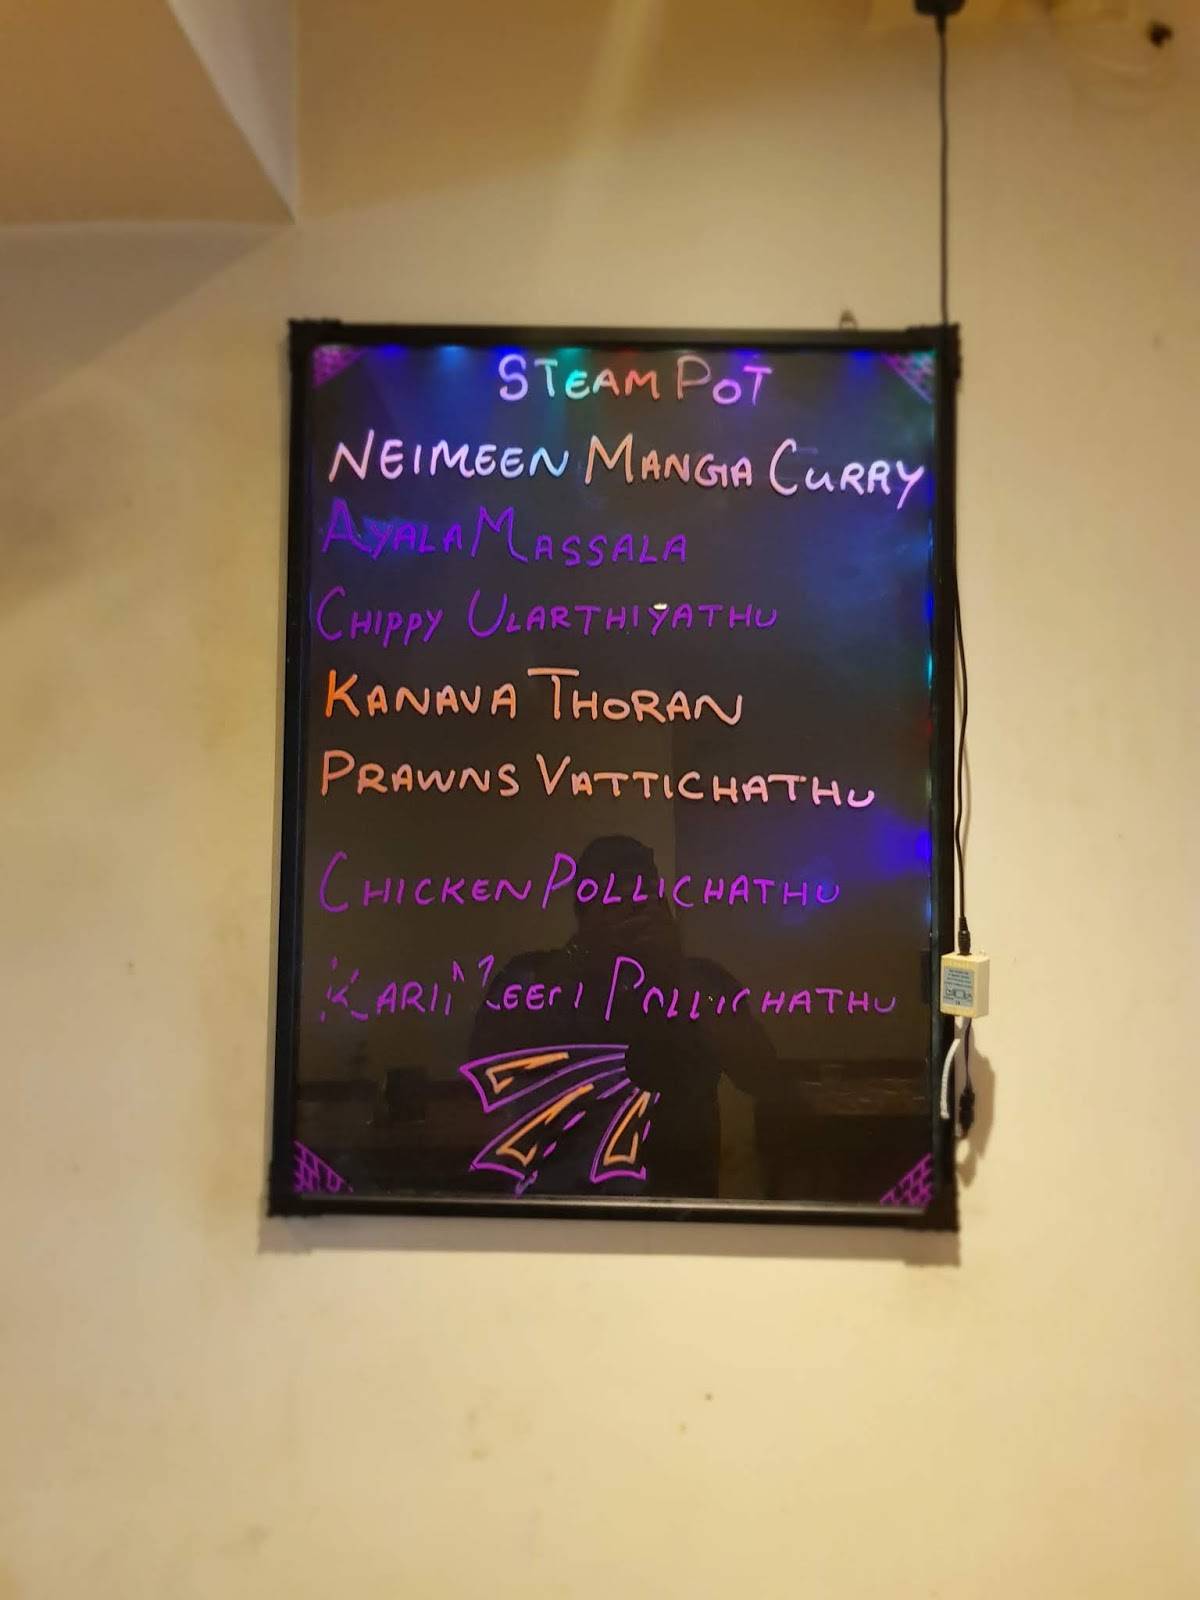 STEAM POT
NEIMEEN MANGA CURRY
AYALA MASSALA
CHIPPY ULARTHIYATHU
KANAVA THORAN
PRAWNS VATTICHATHU
CHICKEN POLLICHATHU
KARIMEEN POLLICHATHU